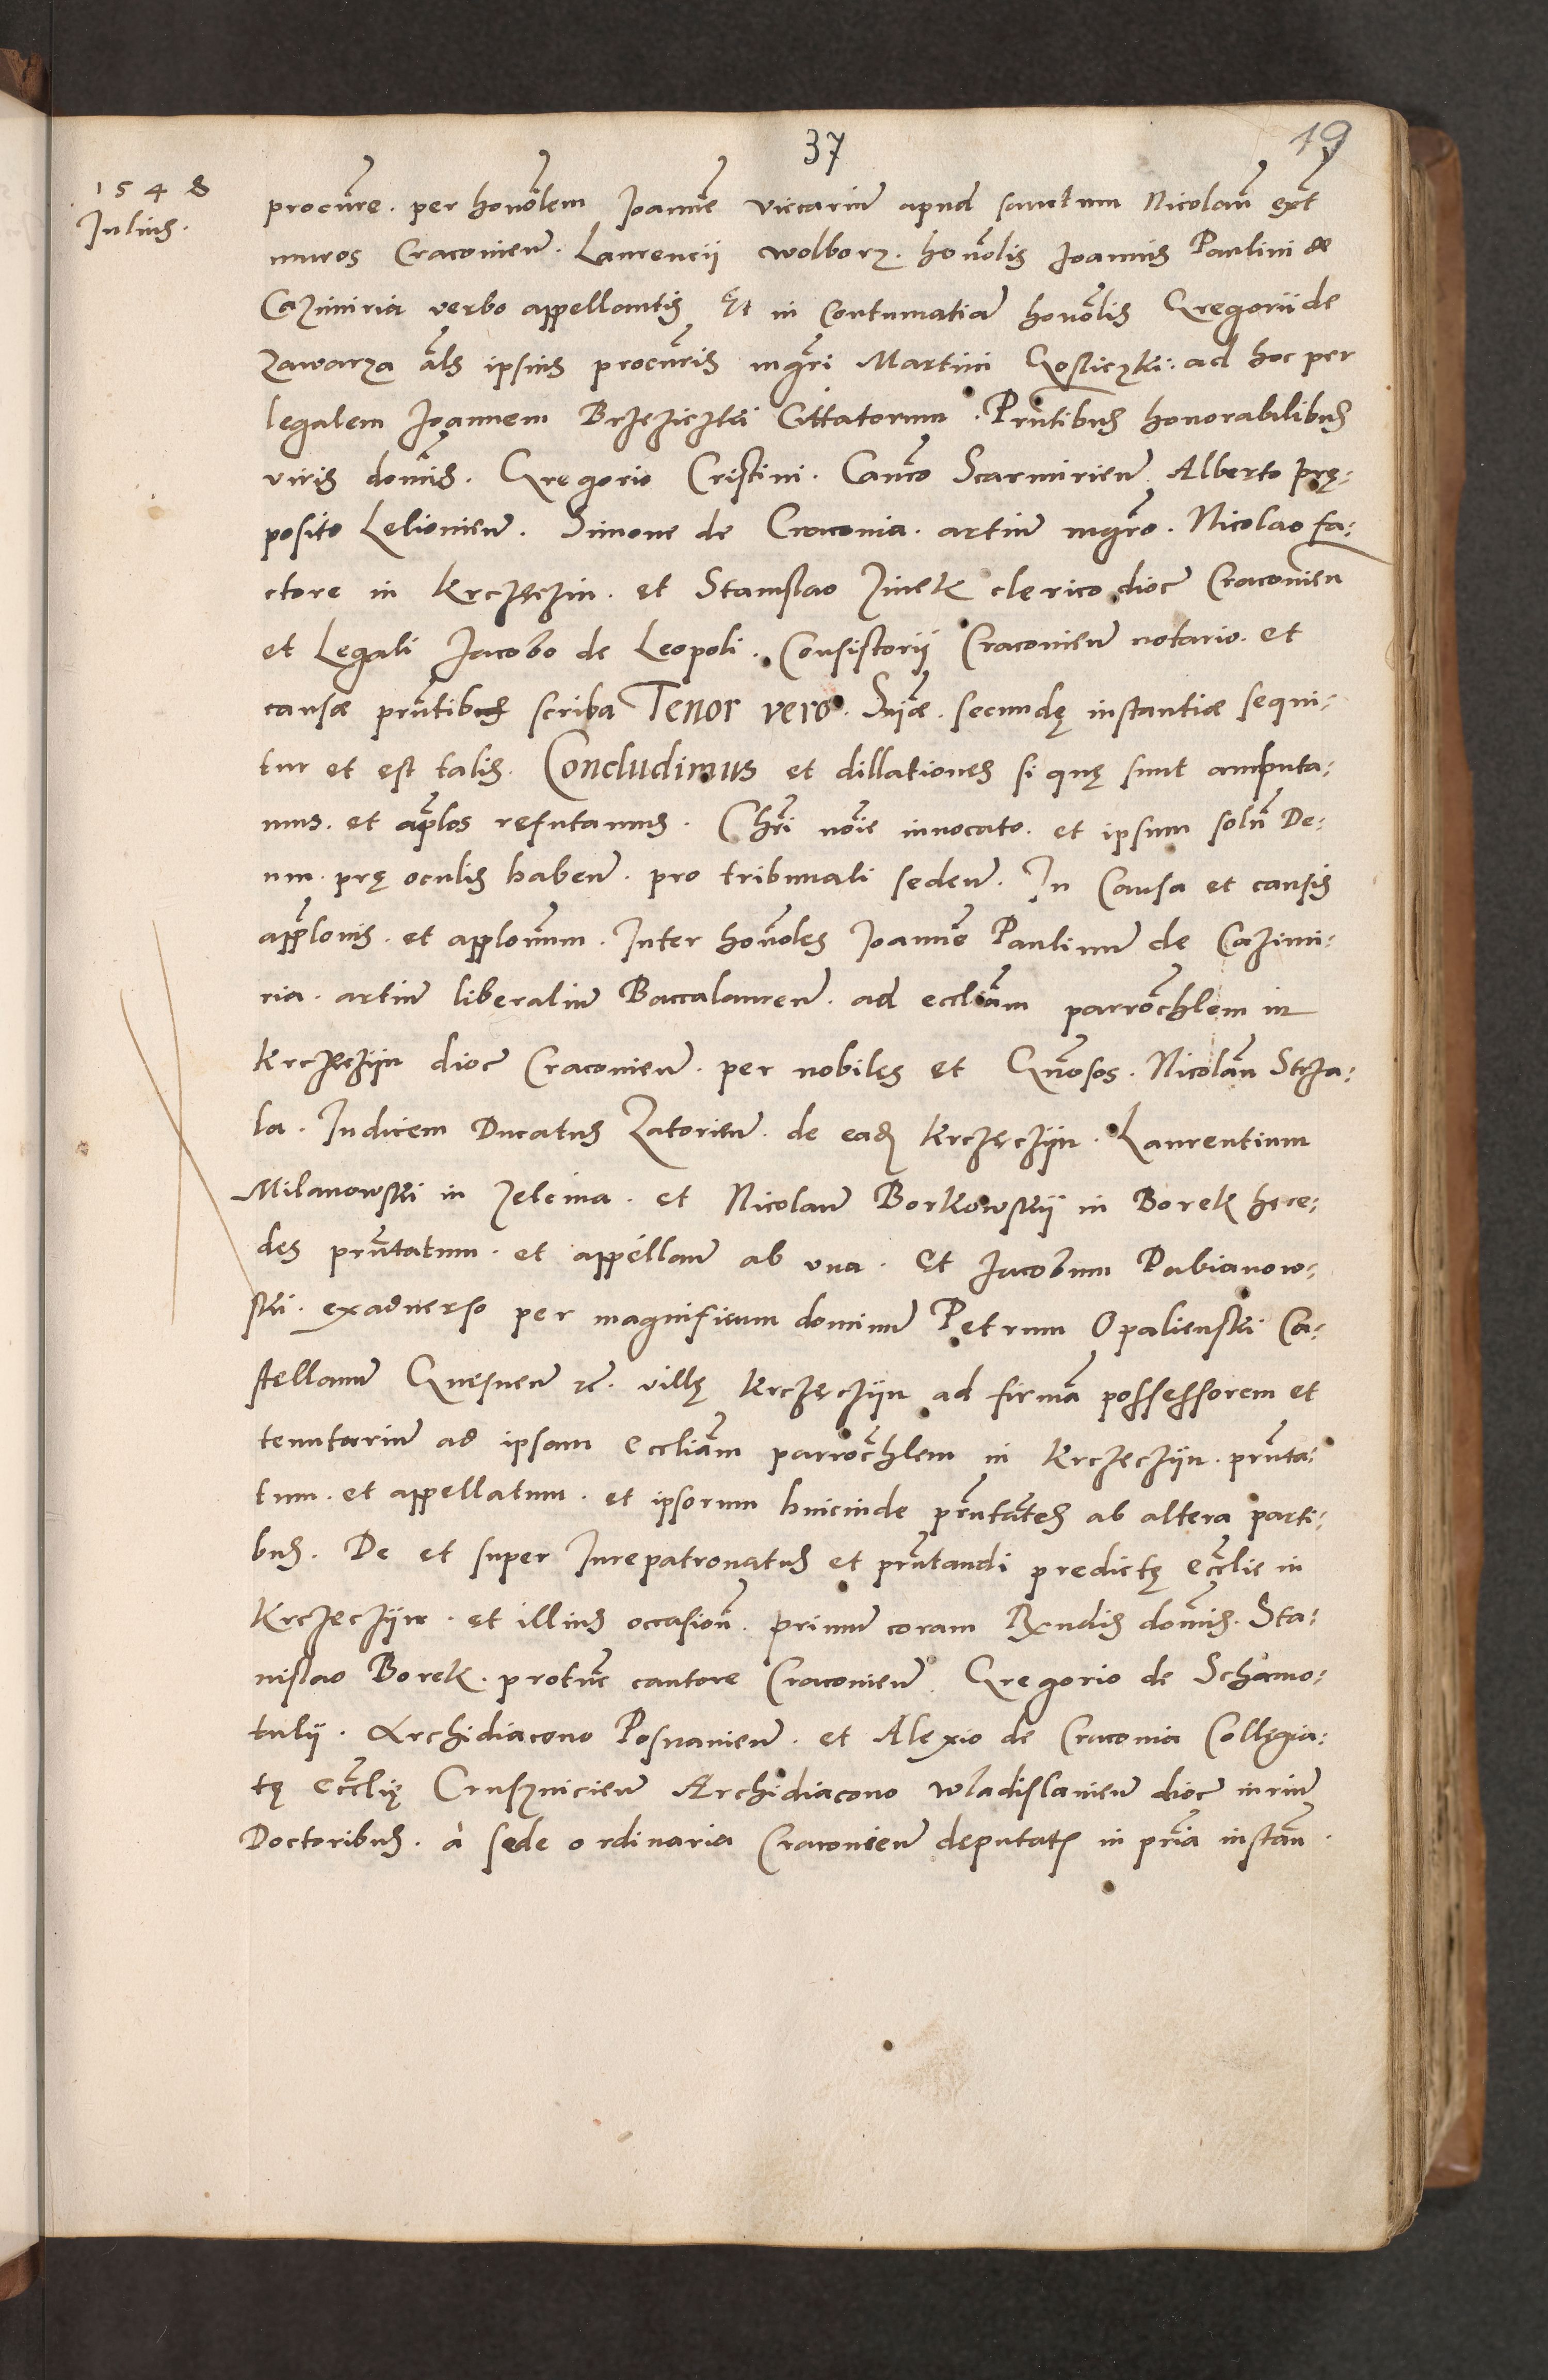 37
19
1548
Julius.
procure. per honolem Joanne viccariu apud sanctum Nicolau ext
muros Cracovien. Laurencii Wolborz. honolis Joannis Paulini de
Cazimiria verbo appellantis Et in contumatia honolis Gregorii de
Zawarza als ipsius procuris mgri Martini Gosticzki. ad hoc per
legalem Joannem Brzeziczki Cittatorum. Pntibus honorabilibus
viris domis. Gregorio Cristini. Canco Scarmirien. Alberto prę-
posito Lelovien. Simone de Cracovia. artiu mgro. Nicolao fa-
ctore in Krczeczin. et Stanislao Zinek clerico dioc Cracovien
et Legali Jacobo de Leopoli. Consistorii Cracovien notario. et
causæ pntibus scriba Tenor vero. Sniæ. secundę instantiæ sequi-
tur et est talis. Concludimus et dillationes si quę sunt amputa-
mus. et aplos refutamus. Chri noie invocato. et ipsum solu De-
um. prę oculis haben. pro tribunali seden. In Causa et causis
applonis. et applonum. Inter honoles Joanne Paulinu de Cazimi-
ria. artiu liberaliu Baccalaureu. ad eccliam parrochlem in
Krczeczijn dioc Cracovien. per nobiles et Gnosos. Nicolau Strza-
la. Judicem Ducatus Zatorien. de eade Krczeczijn. Laurentium
Milanowski in Zelcina. et Nicolau Borkowskij in Borek here-
des pntatum. et appellan ab una. Et Jacobum Pabianow-
ski. exadverso per magnificum dominu Petrum Opalienski Ca-
stellanu Gnesnen zc. villę Krczeczijn ad firma possessorem et
tenutariu ad ipsam Eccliam parrochlem in Krczeczijn. pnta-
tum. et appellatum. et ipsorum hincinde pntates ab altera parti-
bus. De et super Jurepatronatus et pntandi predictę ecclie in
Krczeczijn. et illius occasion. primu coram Rxndis domis. Sta-
nislao Borek. protunc cantore Cracovien. Gregorio de Schamo-
tulij. Archidiacono Posnanien. et Alexio de Cracovia Collegia-
tę Ecclię Cruszvicien Archidiacono Wladislavien dioc iuriu
Doctoribus. à sede ordinaria Cracovien deputatis in pria instan.